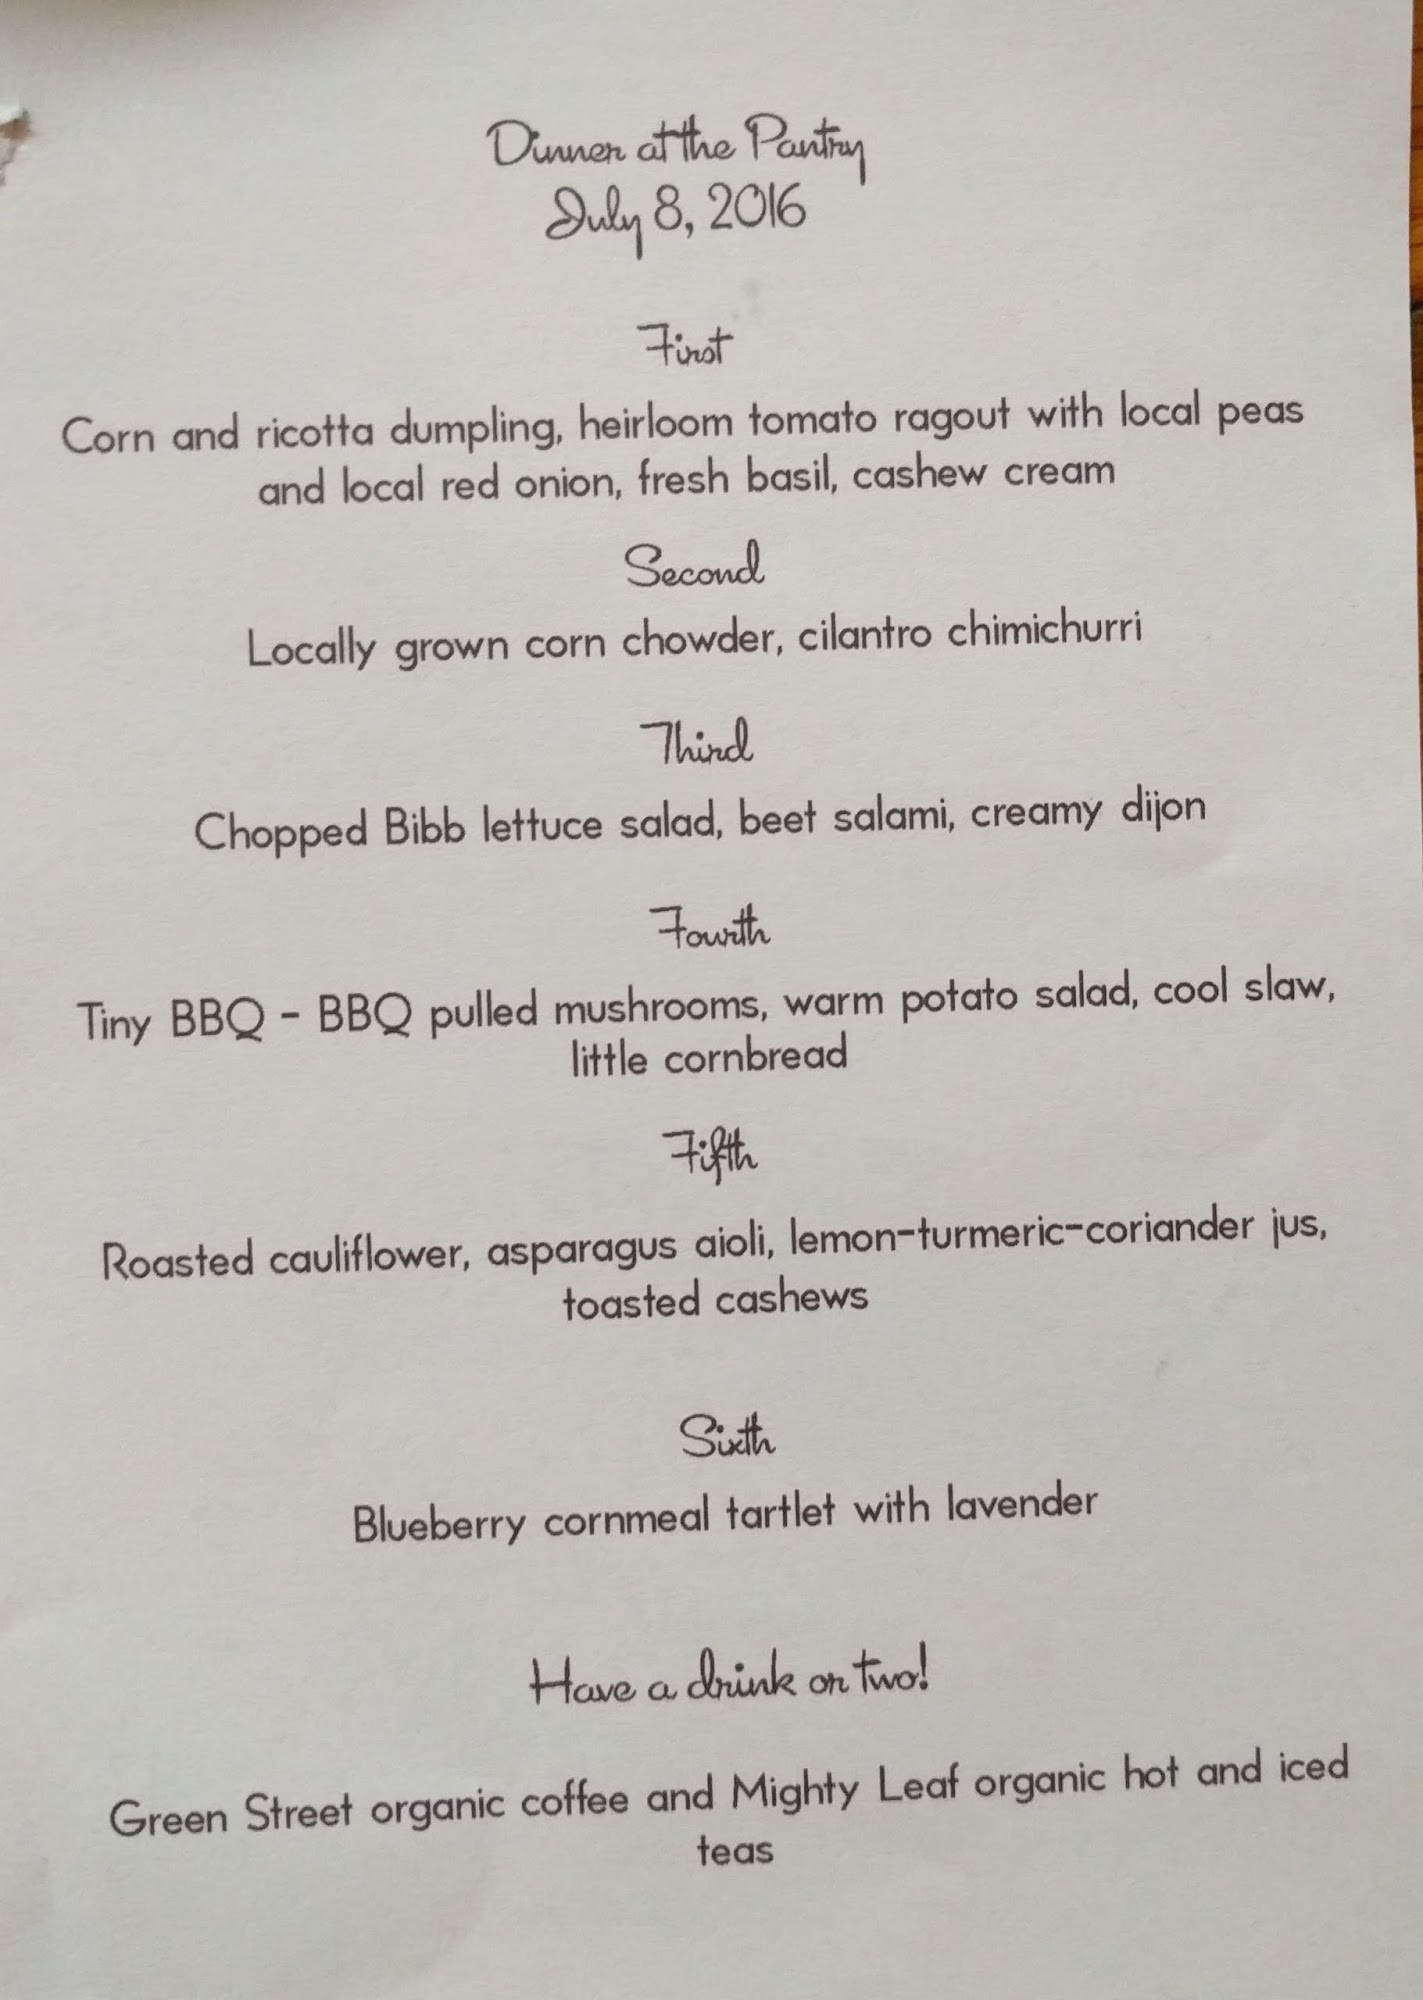 Dinner at the Pantry
July 8, 2016
First
Corn and ricotta dumpling, heirloom tomato ragout with local peas
and local red onion, fresh basil, cashew cream
Second
Locally grown corn chowder, cilantro chimichurri
Third
Chopped Bibb lettuce salad, beet salami, creamy dijon
Fourth
Tiny BBQ - BBQ pulled mushrooms, warm potato salad, cool slaw,
little cornbread
Fifth
Roasted cauliflower, asparagus aioli, lemon-turmeric-coriander jus,
toasted cashews
Sixth
Blueberry cornmeal tartlet with lavender
Have a drink or two!
Green Street organic coffee and Mighty Leaf organic hot and iced
teas